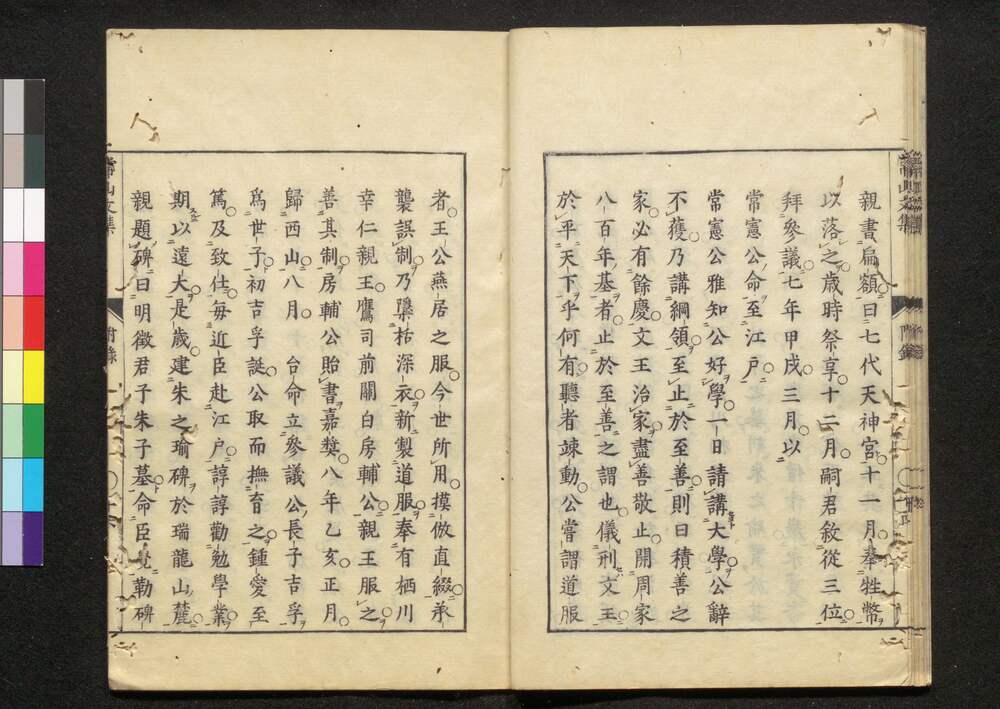 親書扁額曰七代天神宮十一月奉牲幣
以落之歲時祭享十二月嗣君敘從三位
拜參議七年甲戌三月以
常憲公命至江戶
常憲公雅知公好學一日請講大學公辭
不獲乃講綱領至止於至善則曰積善之
家必有餘慶文王治家盡善敬止開周家
八百年基者止於至善之謂也儀刑文王
於平天下乎何有聽者竦動公嘗謂道服
者王公燕居之服今世所用摸倣直綴承
襲誤制乃隱栝深衣新製道服奉有栖川
幸仁親王鷹司前關白房輔公親王服之
善其制房輔公貽書嘉奬八年乙亥正月
歸西山八月台命立參議公長子吉孚
爲世子初吉孚誕公取而撫育之鍾愛至
篤及致仕每近臣赴江戶諄諄勸勉學業
期以遠大是歲建朱之瑜碑於瑞龍山麓
親題碑曰明徵君子朱子墓命臣覺勒碑
山文集
附錄